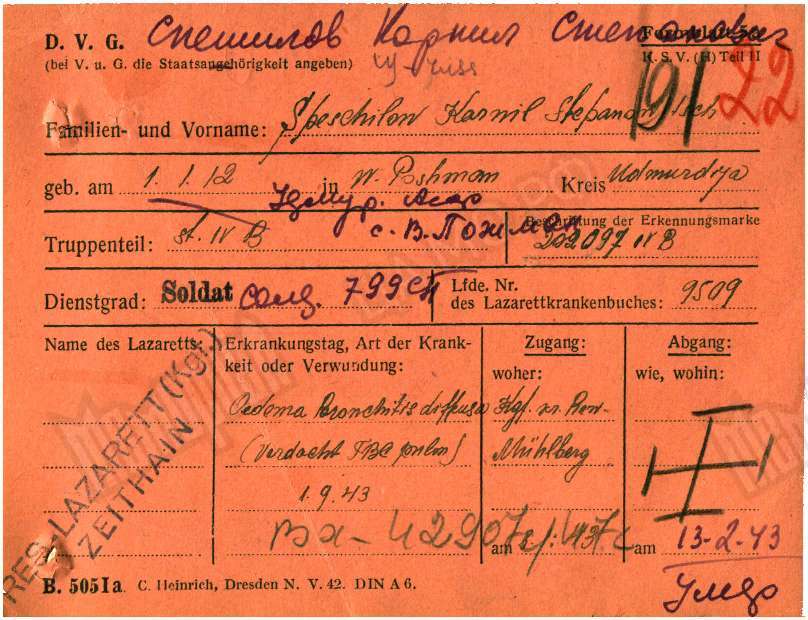 D. V. G. Спешилов Корнил Степанович Formblatt 5a
(bei V. u. G. die Staatsangehörigkeit angeben) K. S. V. (H) Teil II
191 22
Familien- und Vorname: Speschilow Karnil Stepanowitsch
geb. am 1. 1. 12 in W. Poshman Kreis Udmurdija
Удмур. Асср
Truppenteil: st. IV B с. В. Пожман Beschriftung der Erkennungsmarke
202097 IV B
Dienstgrad: Soldat солд. 799 сп Lfde. Nr.
des Lazarettkrankenbuches: 9509
Name des Lazaretts: Erkrankungstag, Art der Krank-
keit oder Verwundung: Zugang:
woher: Abgang:
wie, wohin:
RES. LAZARETT (Kgf.)
ZEITHAIN
Oedema Bronchitis diffusa
(Verdacht TBC pulm)
1. 9. 43
Kgf.
Mühlberg
Вх – 42907 am am 13-2-43
B. 5051a C. Heinrich, Dresden N. V. 42. DIN A 6.
Умер